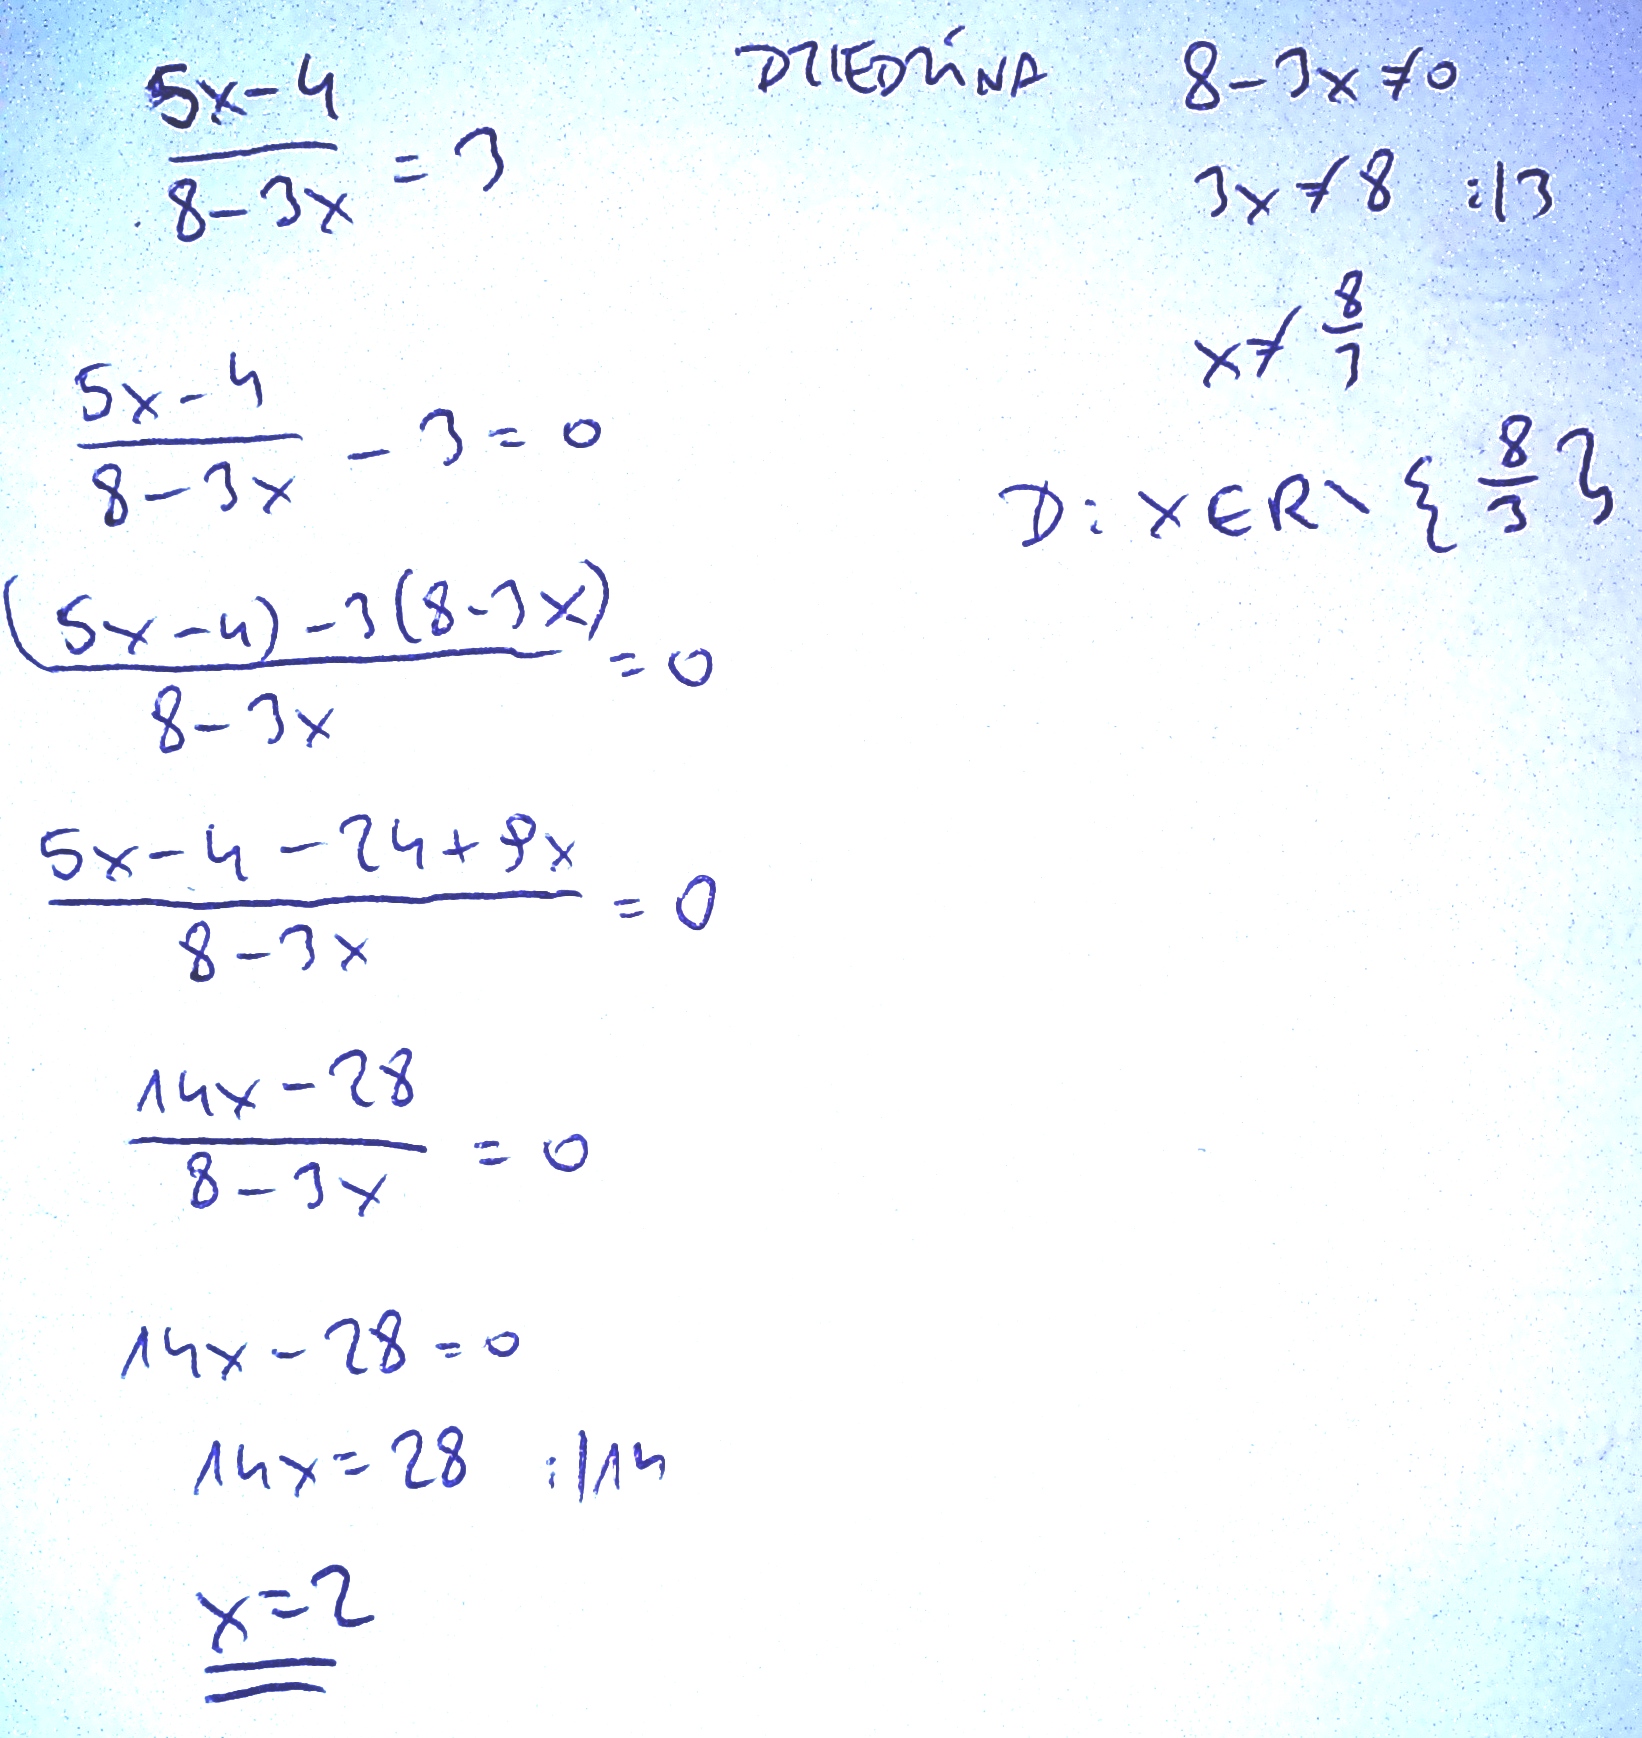 (5x-4)/(8-3x) = 3
DZIEDZINA 8-3x≠0
3x≠8 :|3
x≠8/3
D: x∈R\{8/3}
(5x-4)/(8-3x) - 3 = 0
((5x-4)-3(8-3x))/(8-3x) = 0
(5x-4-24+9x)/(8-3x) = 0
(14x-28)/(8-3x) = 0
14x-28=0
14x=28 :|14
x=2